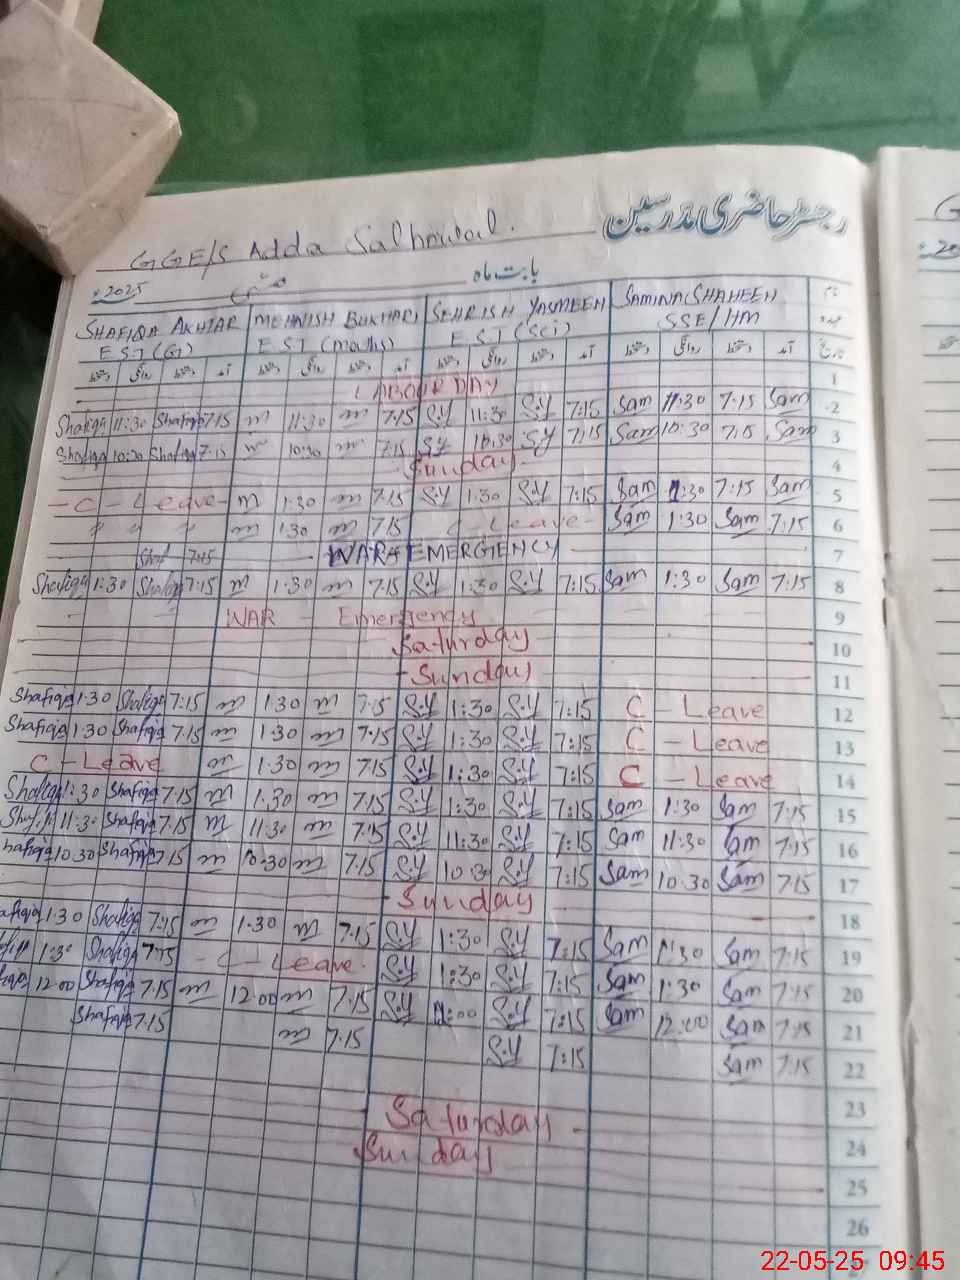 رجسٹر حاضری مدرسین
GGE/S Adda
بابت ماہ
2025ء
SHAFIQA AKHTAR MEHNISH BUKHARI SEHRISH YASMEEN SAMINA SHAHEEN
E.S.T (G) E.S.T (maths) E.S.T (Sci) SSE/HM
دستخط روانگی دستخط آمد دستخط روانگی دستخط آمد دستخط روانگی دستخط آمد دستخط روانگی دستخط آمد تاریخ
LABOUR DAY 1
Shafiqa 11:30 Shafiqa 7:15 m 11:30 m 7:15 S.Y 11:30 S.Y 7:15 Sam 11:30 7:15 Sam 2
Shafiqa 10:30 Shafiqa 7:15 m 10:30 m 7:15 S.Y 10:30 S.Y 7:15 Sam 10:30 7:15 Sam 3
Sunday 4
- C - Leave - m 1:30 m 7:15 S.Y 1:30 S.Y 7:15 Sam 1:30 7:15 Sam 5
〃 〃 〃 m 1:30 m 7:15 C - Leave - Sam 1:30 Sam 7:15 6
Shaf 7:15 - WAR EMERGENCY 7
Shafiqa 1:30 Shafiqa 7:15 m 1:30 m 7:15 S.Y 1:30 S.Y 7:15 Sam 1:30 Sam 7:15 8
WAR Emergency 9
Saturday 10
Sunday 11
Shafiqa 1:30 Shafiqa 7:15 m 1:30 m 7:15 S.Y 1:30 S.Y 7:15 C - Leave 12
Shafiqa 1:30 Shafiqa 7:15 m 1:30 m 7:15 S.Y 1:30 S.Y 7:15 C - Leave 13
C - Leave m 1:30 m 7:15 S.Y 1:30 S.Y 7:15 C - Leave 14
Shafiqa 1:30 Shafiqa 7:15 m 1:30 m 7:15 S.Y 1:30 S.Y 7:15 Sam 1:30 Sam 7:15 15
Shafiqa 11:30 Shafiqa 7:15 m 11:30 m 7:15 S.Y 11:30 S.Y 7:15 Sam 11:30 Sam 7:15 16
hafiqa 10:30 Shafiqa 7:15 m 10:30 m 7:15 S.Y 10:30 S.Y 7:15 Sam 10:30 Sam 7:15 17
- Sunday 18
afiqa 1:30 Shafiqa 7:15 m 1:30 m 7:15 S.Y 1:30 S.Y 7:15 Sam 1:30 Sam 7:15 19
1:30 Shafiqa 7:15 - C - Leave. S.Y 1:30 S.Y 7:15 Sam 1:30 Sam 7:15 20
fiqa 12:00 Shafiqa 7:15 m 12:00 m 7:15 S.Y 12:00 S.Y 7:15 Sam 12:00 Sam 7:15 21
Shafiqa 7:15 m 7:15 S.Y 7:15 Sam 7:15 22
23
Saturday - 24
Sunday 25
26
22-05-25 09:45